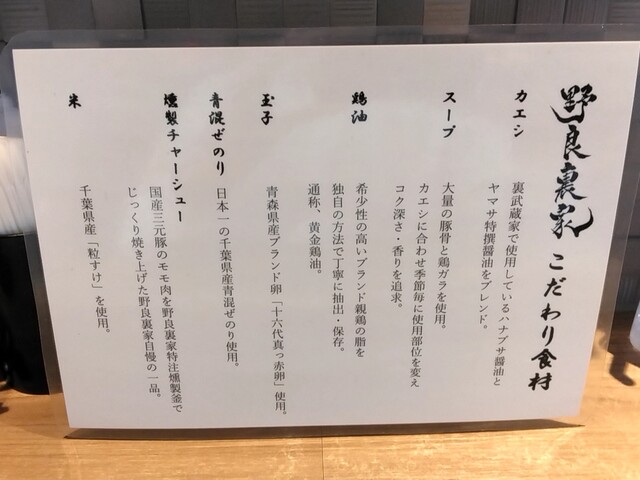 野良裏家 こだわり食材
カエシ
裏武蔵家で使用しているハナブサ醤油と
ヤマサ特撰醤油をブレンド。
スープ
大量の豚骨と鶏ガラを使用。
カエシに合わせ季節毎に使用部位を変え
コク深さ・香りを追求。
鶏油
希少性の高いブランド親鶏の脂を
独自の方法で丁寧に抽出・保存。
通称、黄金鶏油。
玉子
青森県産ブランド卵「十六代真っ赤卵」使用。
青混ぜのり
日本一の千葉県産青混ぜのり使用。
燻製チャーシュー
国産三元豚のモモ肉を野良裏家特注燻製釜で
じっくり焼き上げた野良裏家自慢の一品。
米
千葉県産「粒すけ」を使用。